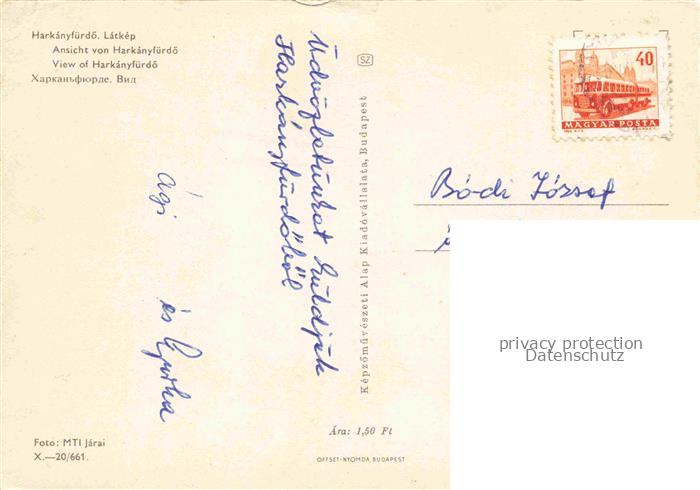 Harkányfürdő. Látkép
Ansicht von Harkányfürdő
View of Harkányfürdő
Харканьфюрде. Вид
Üdvözletünket küldjük
Harkányfürdőből
Ági
és Gyurka
SZ
Képzőművészeti Alap Kiadóvállalata, Budapest
40
MAGYAR POSTA
Bódi József
privacy protection
Datenschutz
Ára: 1,50 Ft
Foto: MTI Járai
X.—20/661.
OFFSET-NYOMDA, BUDAPEST